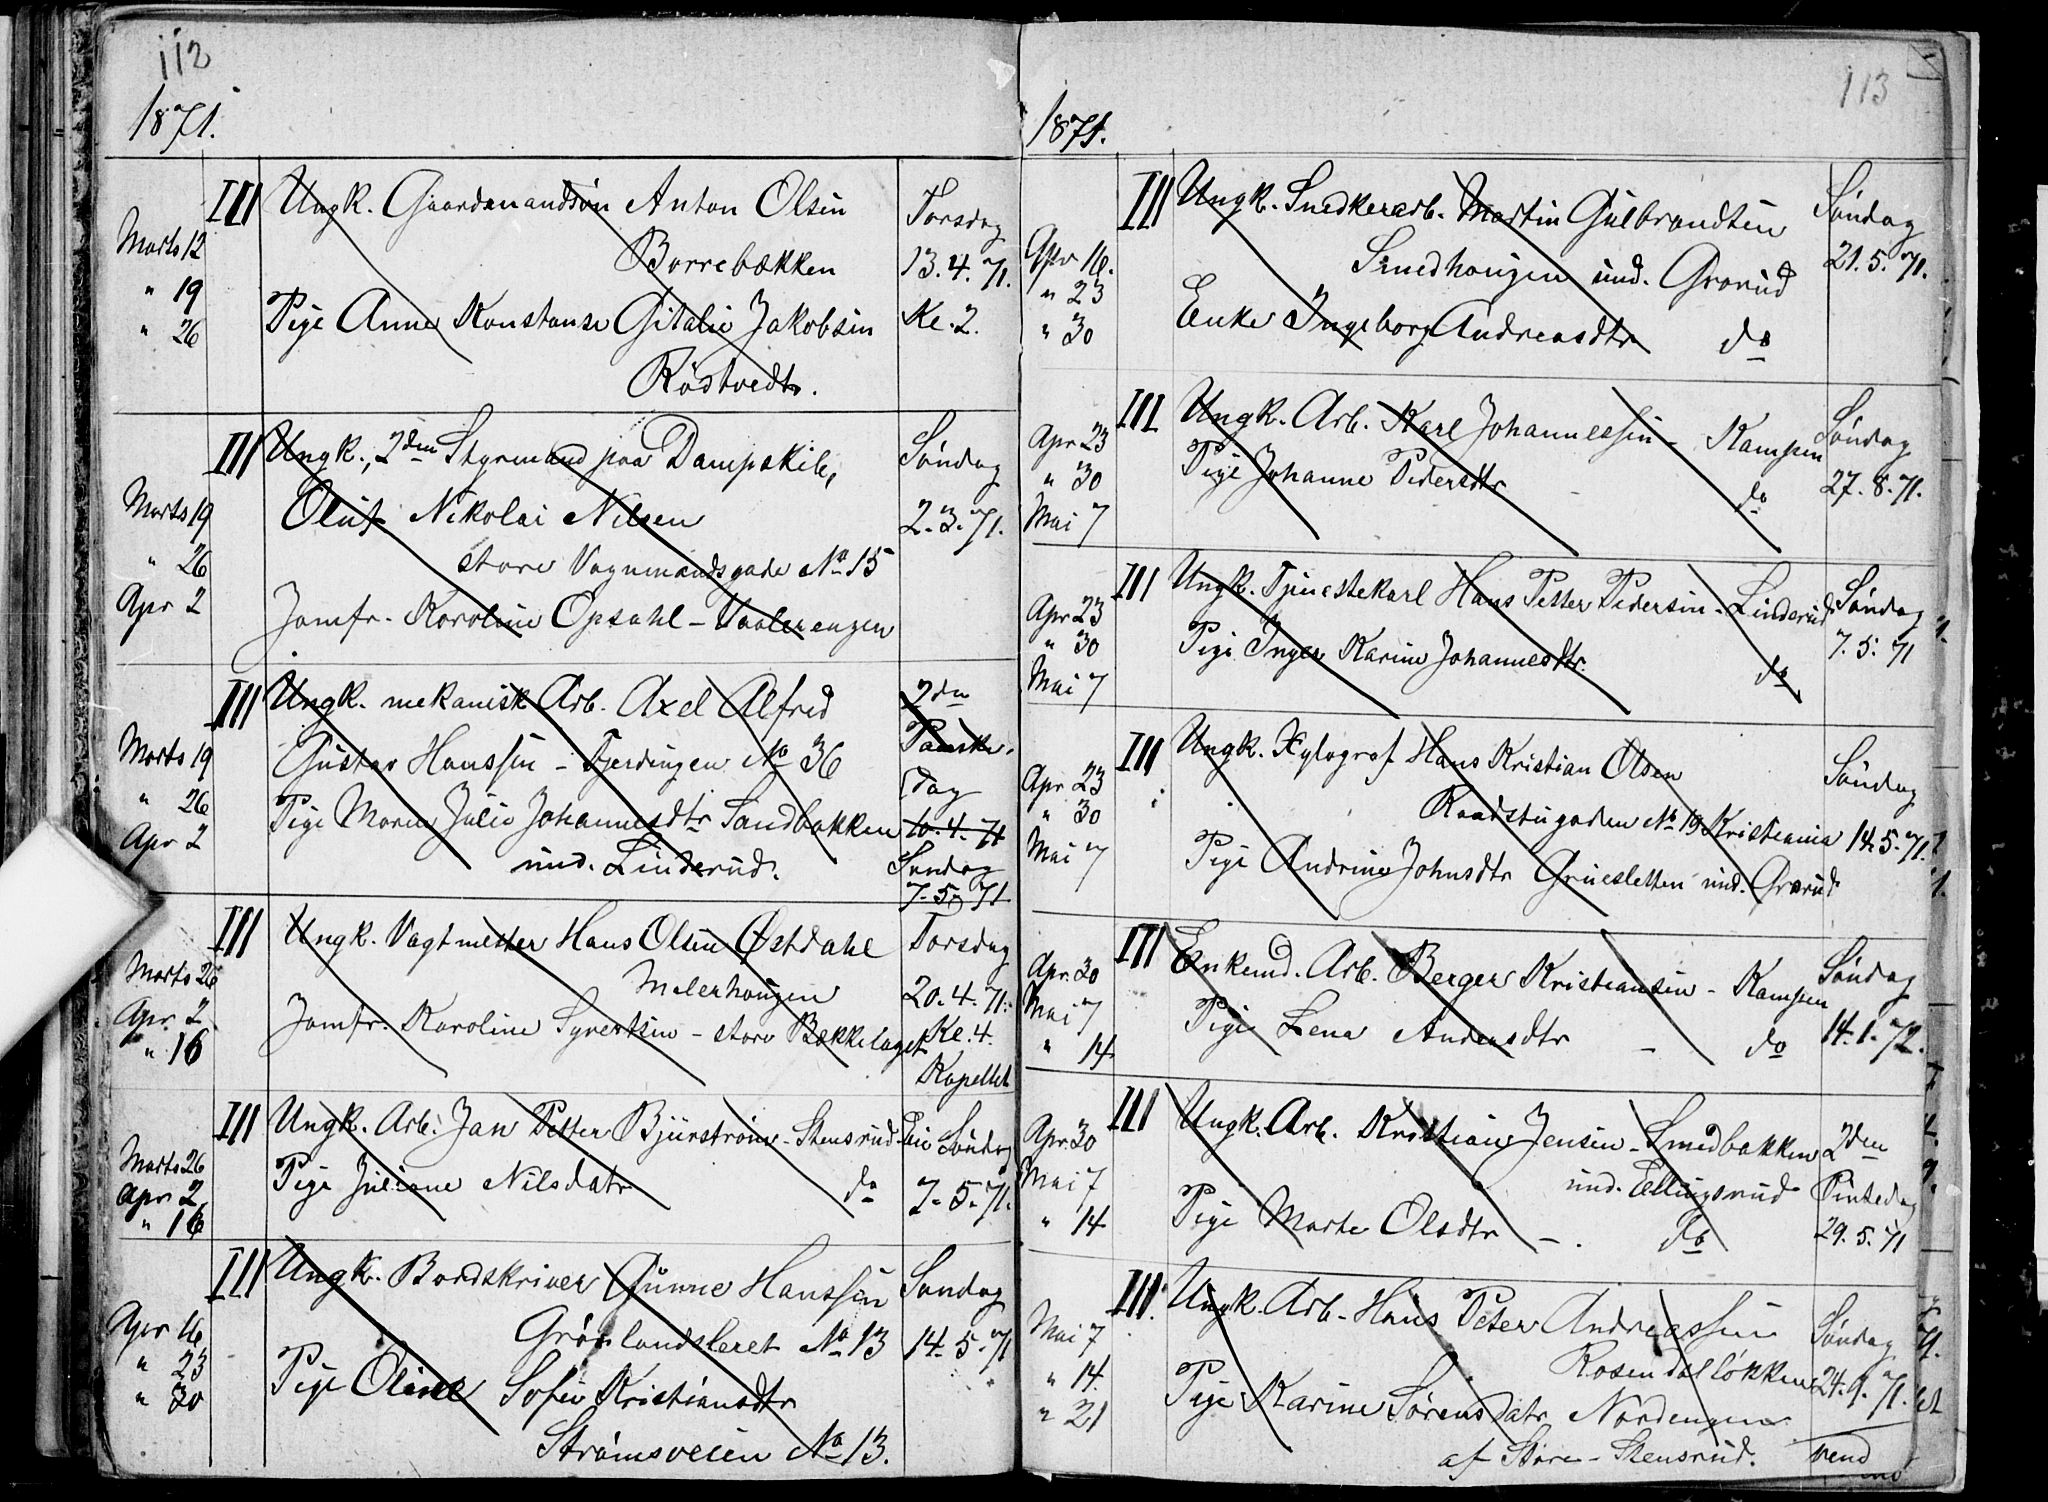 112
1871.
III Ungk. Gaardmandsön Anton Olsen Torsdag
Marts 12 Borrebækken 13.4.71.
" 19 Pige Anne Konstanse Gitalie Jakobsen Kl. 2.
" 26 Rödtvedt.
III Ungk., 2den Styrmand paa Dampskib, Söndag
Marts 19 Oluf Nikolai Nilsen 2.3.71.
" 26 store Vognmandsgade No 15
Apr 2 Jomfr. Karoline Opsahl - Vaalerengen
III Ungk. mekanisk Arb. Axel Alfred 2den
Marts 19 Gustav Hanssen - Fjerdingen No 36 Paaske-
" 26 dag
Apr 2 Pige Maren Julie Johannesdtr Sandbakken 10.4.71
und. Linderud. Sundag
7.5.71
III Ungk. Vagtmester Hans Olsen Østdahl Torsdag
Marts 26 Melerhougen 20.4.71.
Apr. 2 Jomfr. Karoline Syvertsen - store Bækkelaget Kl. 4.
" 16 Kapellet
III Ungk. Arb. Jan Petter Bjurström - Stensrud Eie Söndag
Marts 26 Pige Juliane Nilsdatr do 7.5.71.
Apr 2
" 16
III Ungk. Bordskriver Gunne Hanssen Sundag
Apr 16 Grönlandsleret No 13 14.5.71
" 23 Pige Oline Sofie Kristiansdtr
" 30 Strömsveien No 13.
113
1871.
III Ungk. Snedkerarb. Martin Gulbrandsen Söndag
Apr 16. Smedhougen und. Grorud 21.5.71.
" 23 Enke Ingeborg Andreasdtr do
" 30
III Ungk. Arb. Karl Johannessen - Kampen Söndag
Apr 23 Pige Johanne Pedersdtr - do 27.8.71.
" 30
Mai 7
III Ungk. Tjenestekarl Hans Petter Pedersen - Linderud Söndag
Apr 23 Pige Inger Karine Johannesdtr. do 7.5.71
" 30
Mai 7
III Ungk. Xylograf Hans Kristian Olsen Söndag
Apr 23 Raadstugaden No 19 Kristiania 14.5.71.
" 30 Pige Andrine Johnsdtr Gruesletten und. Grorud
Mai 7
III Enkemd. Arb. Berger Kristiansen - Kampen Söndag
Apr 30 Pige Lena Andersdtr - do 14.1.72.
Mai 7
" 14
III Ungk. Arb. Kristian Jensen - Smedbakken 2den
Apr 30 und. Ellingsrud Pintedag
Mai 7 Pige Marte Olsdtr - do 29.5.71
" 14
III. Ungk. Arb. Hans Peter Andreassen Söndag
Mai 7 Rosendalløkken 24.9.71.
" 14 Pige Karine Sörensdatr Nordengen
" 21 af Store-Stensrud. vend